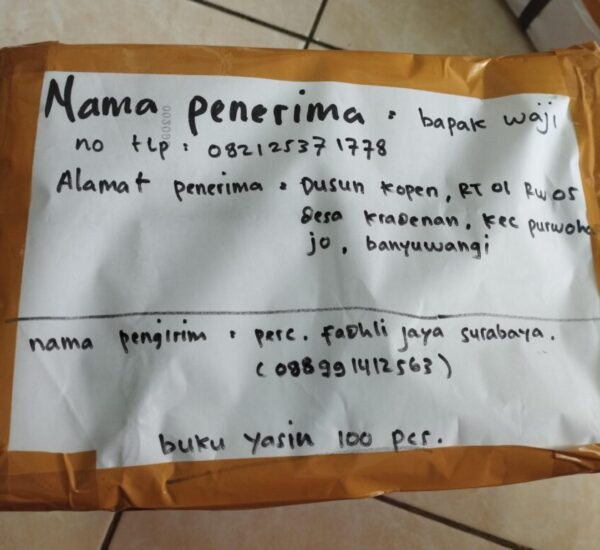 Nama penerima : bapak waji
no tlp : 082125371778
Alamat penerima : Dusun kopen, RT 01 RW 05
Desa kradenan, kec purwoha
jo, banyuwangi
nama pengirim : perc. fadhli jaya surabaya.
(088991412563)
buku yasin 100 pcs.